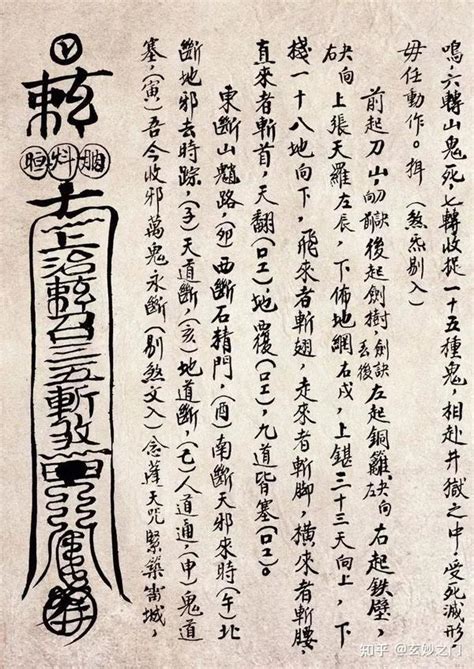 鳴,六轉山鬼死,七轉收捉一十五種鬼,相赴井嶽之中,受死滅形
毋任動作。揖(煞炁剔入)
前起刀山,後起劍樹,劍訣去後左起銅雞,訣向左右起鉄壁,
訣向右上張天羅左辰,下佈地網右戌,上鎮三十三天向上,下
棧一十八地向下,飛來者斬翅,走來者斬脚,橫來者斬腰,
直來者斬首,天翻(口工),地覆(口工),九道皆塞(口工)。
東斷山魈路,(卯)西斷石精門,(酉)南斷天邪來時(午)北
斷地邪去時踪,(子)天道斷,(亥)地道斷,(巳)人道通,(申)鬼道
塞,(寅)吾今收邪萬鬼永斷(剔煞文入)念蓬天咒緊築雷城,
上治敕召三五斬煞
知乎 @玄妙之门